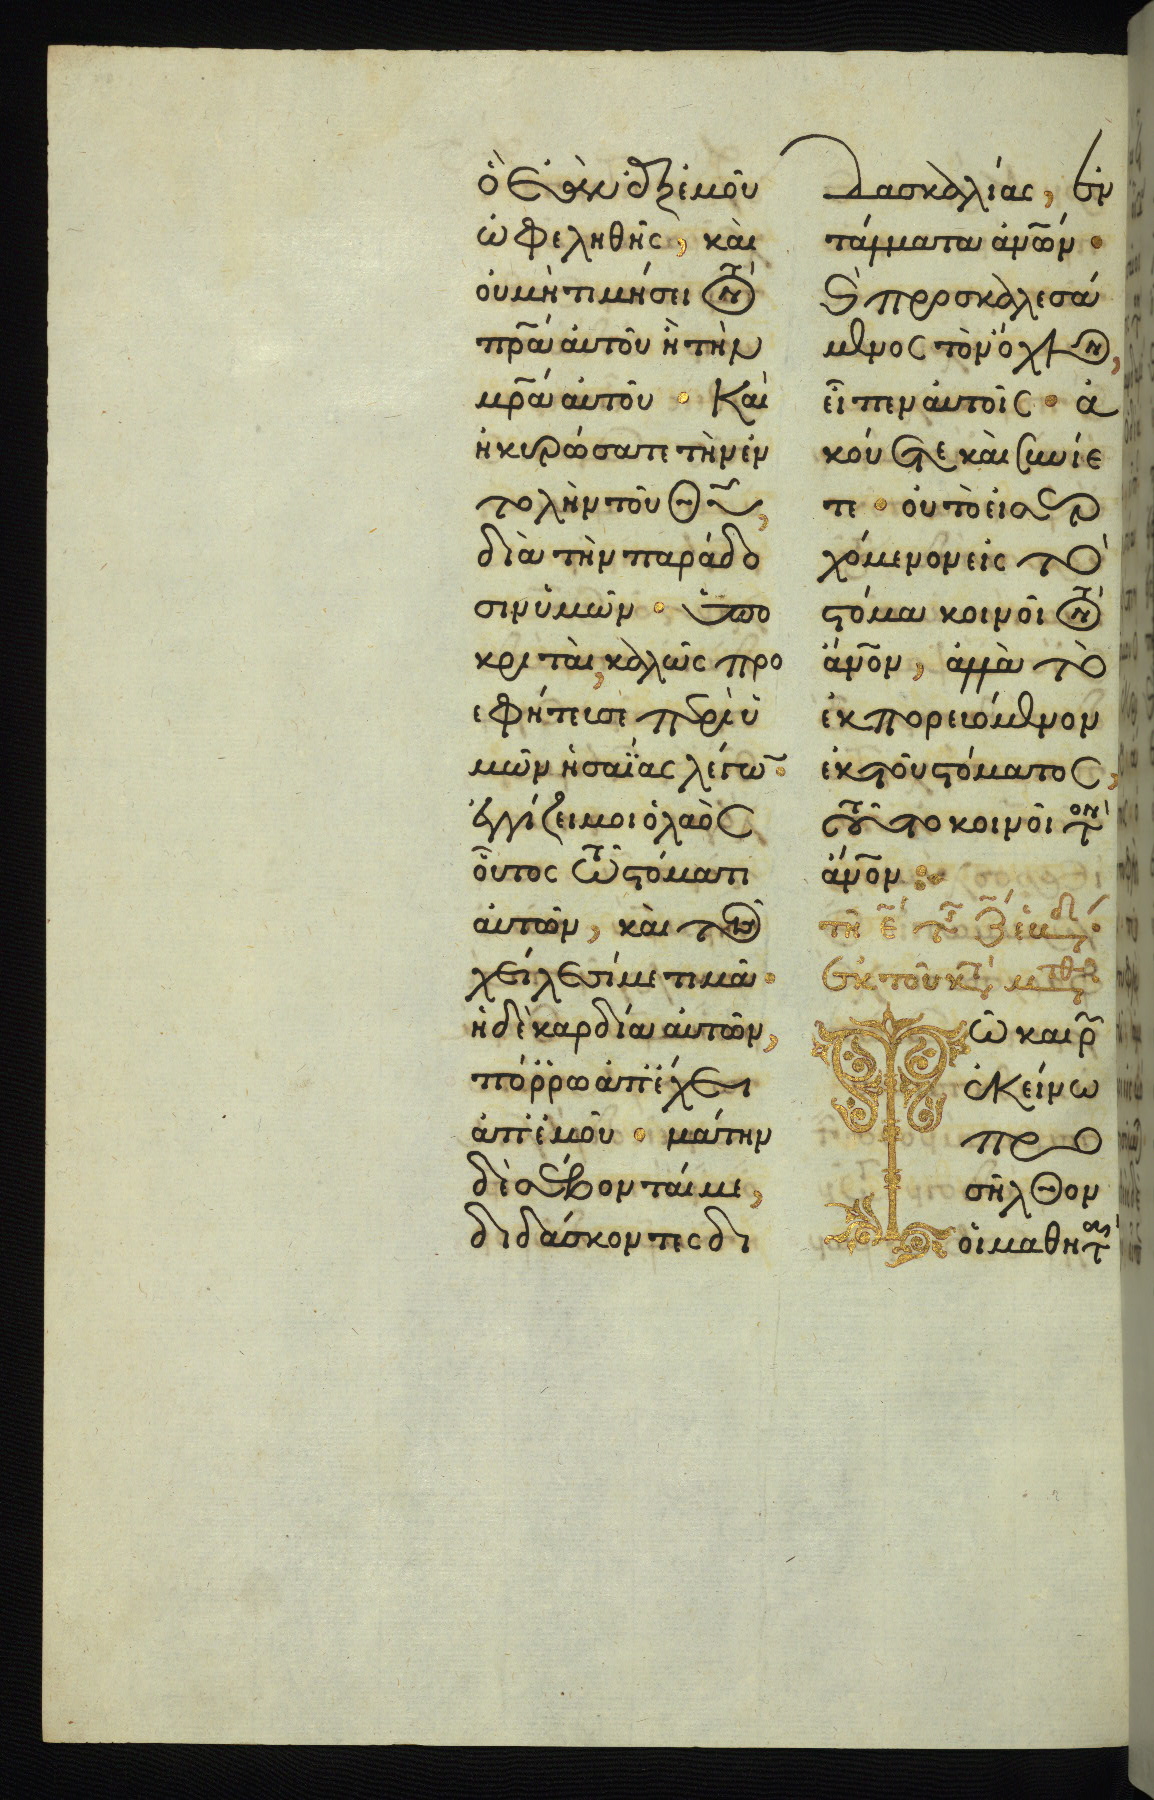 ὃ ἐὰν ἐξ ἐμοῦ
ὠφεληθῆς, καὶ
οὐ μὴ τιμήσει τὸν
πρ̅α αὐτοῦ ἢ τὴν
μρ̅α αὐτοῦ · Καὶ
ἠκυρώσατε τὴν ἐν
τολὴν τοῦ Θυ̅,
διὰ τὴν παράδο
σιν ὑμῶν · ὑπο
κριταὶ, καλῶς προ
εφήτευσε περὶ ὑ
μῶν ἡσαΐας λέγω̅ ·
ἐγγίζει μοι ὁ λαὸς
οὗτος τῶ στόματι
αὐτῶν, καὶ τοῖς
χείλεσί με τιμᾶ ·
ἡ δὲ καρδία αὐτῶν,
πόρρω ἀπέχει
ἀπ' ἐμοῦ · μάτην
δὲ σέβονταί με,
διδάσκοντες δι
δασκαλίας, ἐν
τάλματα ἀν̅ων ·
Καὶ προσκαλεσά
μενος τὸν ὄχλον,
εἶπεν αὐτοῖς · ἀ
κούετε καὶ συνίε
τε · οὐ τὸ εἰσερ
χόμενον εἰς τὸ
στόμα κοινοῖ τὸν
ἄν̅ον, ἀλλὰ τὸ
ἐκπορευόμενον
ἐκ τοῦ στόματος,
τοῦτο κοινοῖ τὸν
ἄν̅ον :
τῆ ε̅ τῆς ζ̅ ἑβδ
ἐκ τοῦ κτ μτθ
Τῶ καιρ̅
ἐκείνω
προ
σῆλθον
οἱ μαθητ